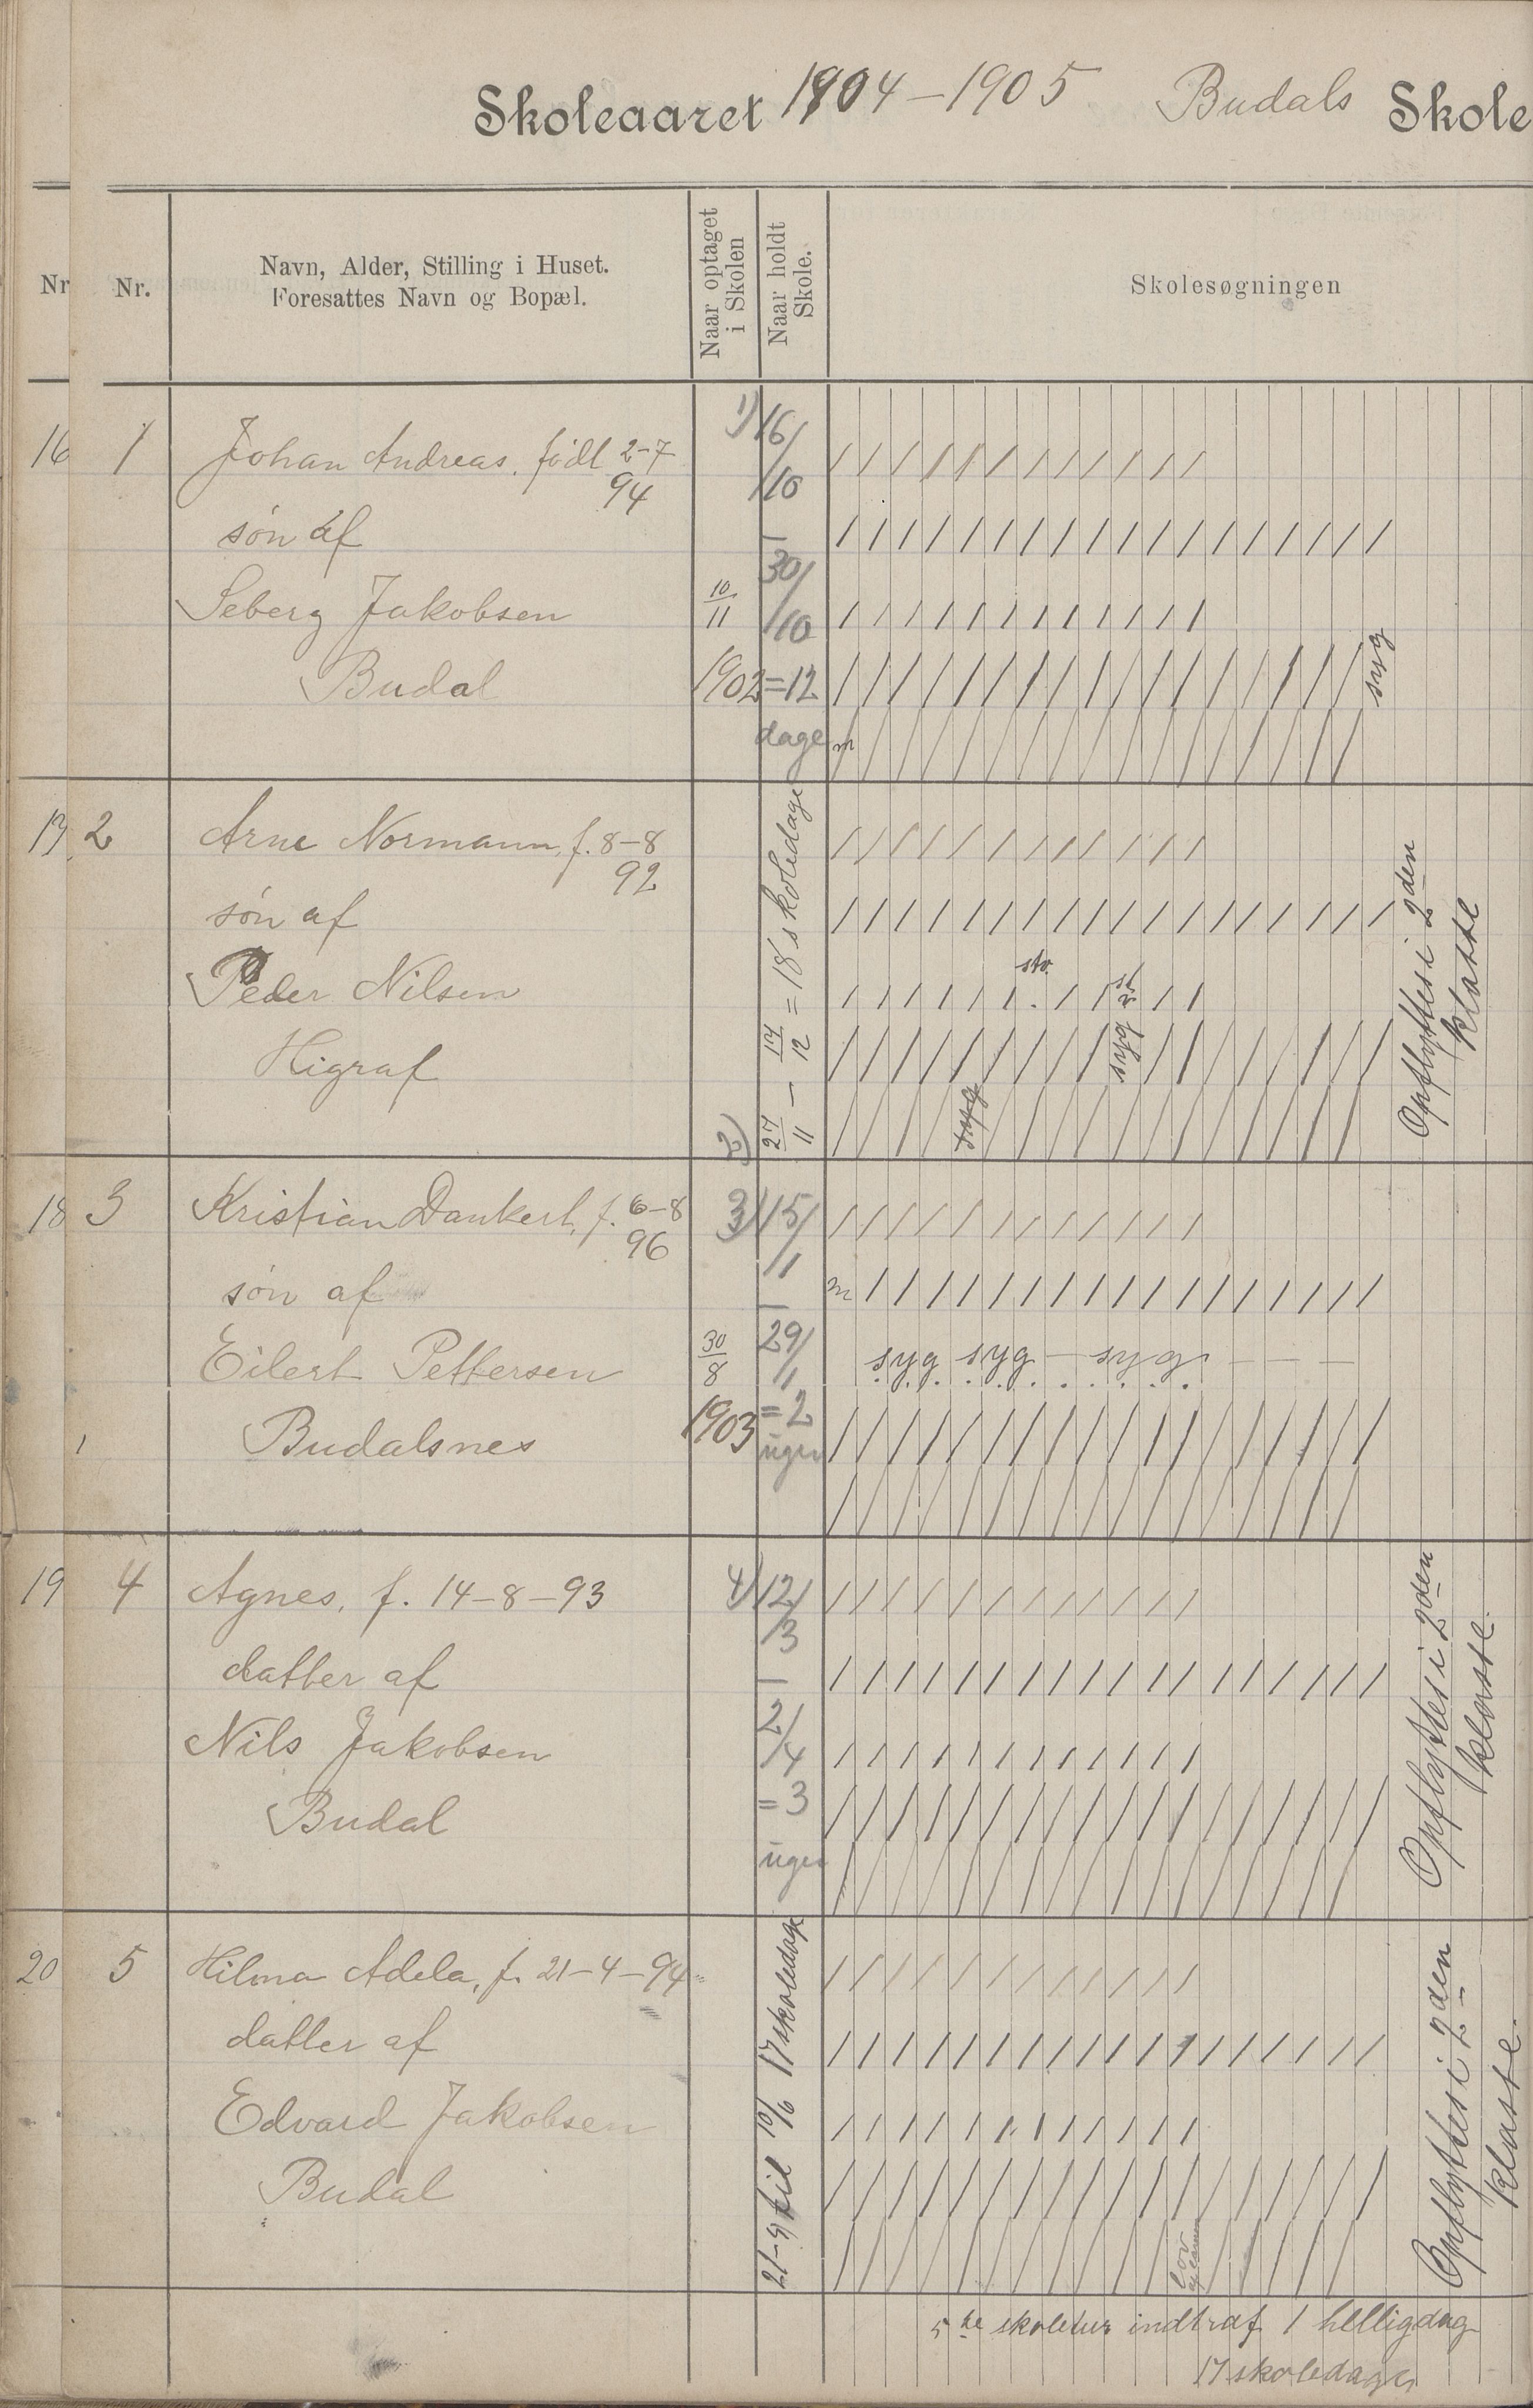 Skoleaaret 1904-1905 Budals Skole
Nr
Nr.
Navn, Alder, Stilling i Huset.
Foresattes Navn og Bopæl.
Naar optaget
i Skolen
Naar holdt
Skole.
Skolesøgningen
16 1 Johan Andreas, født 2-7
94
søn af
Seberg Jakobsen
Budal
10/11
1902
1) 16/10
—
30/10
=12
dage
syg
m
17 2 Arne Normann, f. 8-8
92
søn af
Peder Nilsen
Higraf
2) 27/11 – 17/12 = 18 skoledage
stv.
syg
syg
Opflyttes i 2den
klasse
18 3 Kristian Dankert, f. 6-8
96
søn af
Eilert Pettersen
Budalsnes
30/8
1903
3) 15/1
—
29/1
=2
uger
m
syg syg — syg — — —
19 4 Agnes, f. 14-8-93
datter af
Nils Jakobsen
Budal
4) 12/3
—
2/4
=3
uger
Opflyttes i 2den
klasse.
20 5 Hilma Adela, f. 21-4-94
datter af
Edvard Jakobsen
Budal
til 10/6 17 skoledage
lov
Opflyttes i 2den
klasse.
5te skoletur indtraf 1 helligdag
17 skoledage